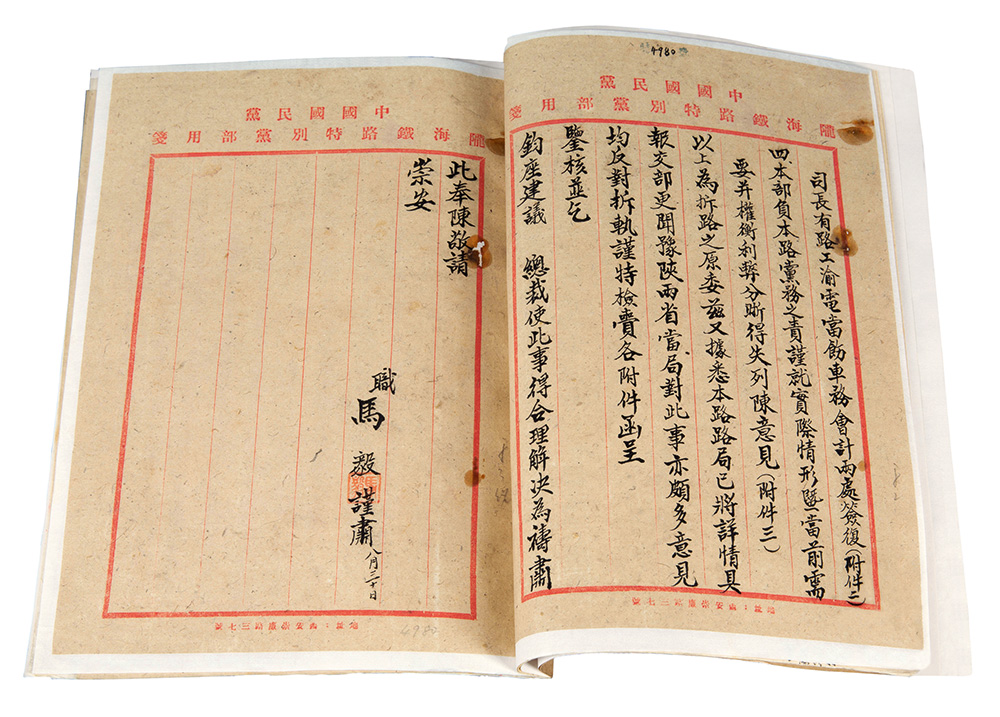 4980
中國國民黨
隴海鐵路特別黨部用箋
司長有路工渝電當飭車務會計兩處簽復(附件二)
四本部負本路黨務之責謹就實際情形暨當前需
要并權衡利弊分晰得失列陳意見(附件三)
以上為拆路之原委茲又據悉本路路局已將詳情具
報交部更聞豫陝兩省當局對此事亦頗多意見
均反對拆軌謹特檢賫各附件函呈
鑒核並乞
鈞座建議 總裁使此事得合理解決為禱肅
中國國民黨
隴海鐵路特別黨部用箋
此奉陳敬請
崇安
職馬毅謹肅
八月三十日
4980